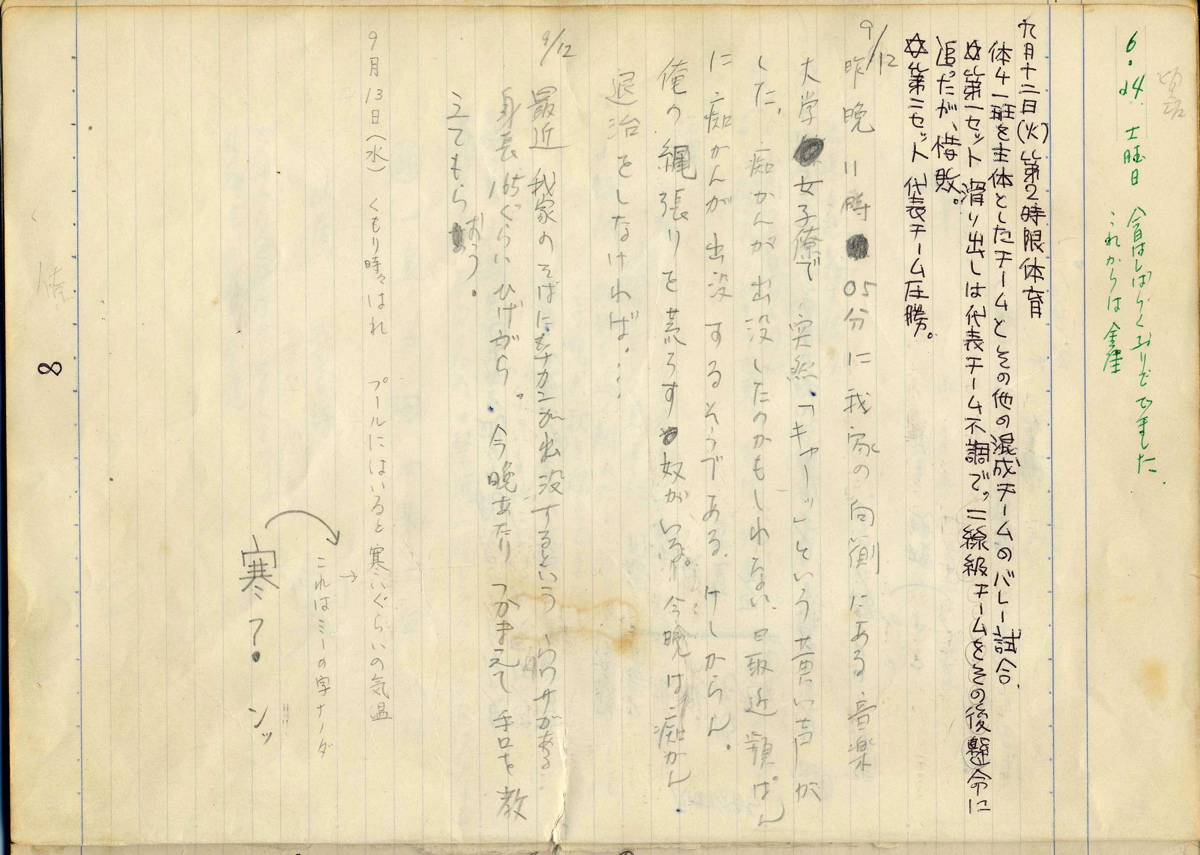 6.14. 土曜日 今日はしばらくぶりででました
これからは
九月十二日(火)第2時限体育
体4一班を主体としたチームとその他の混成チームのバレー試合.
✡第一セット滑り出しは代表チーム不調で。二線級チームをその後懸命に
追ったが、惜敗。
✡第二セット 代表チーム圧勝。
9/12
昨晩 11時 05分に我家の向側にある音楽
大学 女子寮で 突然.「キャーッ」という黄い声が
した. 痴かんが出没したのかもしれない 最近頻ぱん
に痴かんが出没するそうである. けしからん.
俺の縄張りを荒らす奴がいる。今晩は痴かん
退治をしなければ...
9/12
最近 我家のそばにもチカンが出没するという ウワサがある
身長165ぐらい ひげづら。 今晩あたり つかまえて 手口を教
えてもらおう.
9月13日(水) くもり時々はれ プールにはいると寒いぐらいの気温
→
これはミーの字ナーノダ
寒?. ンッ
8